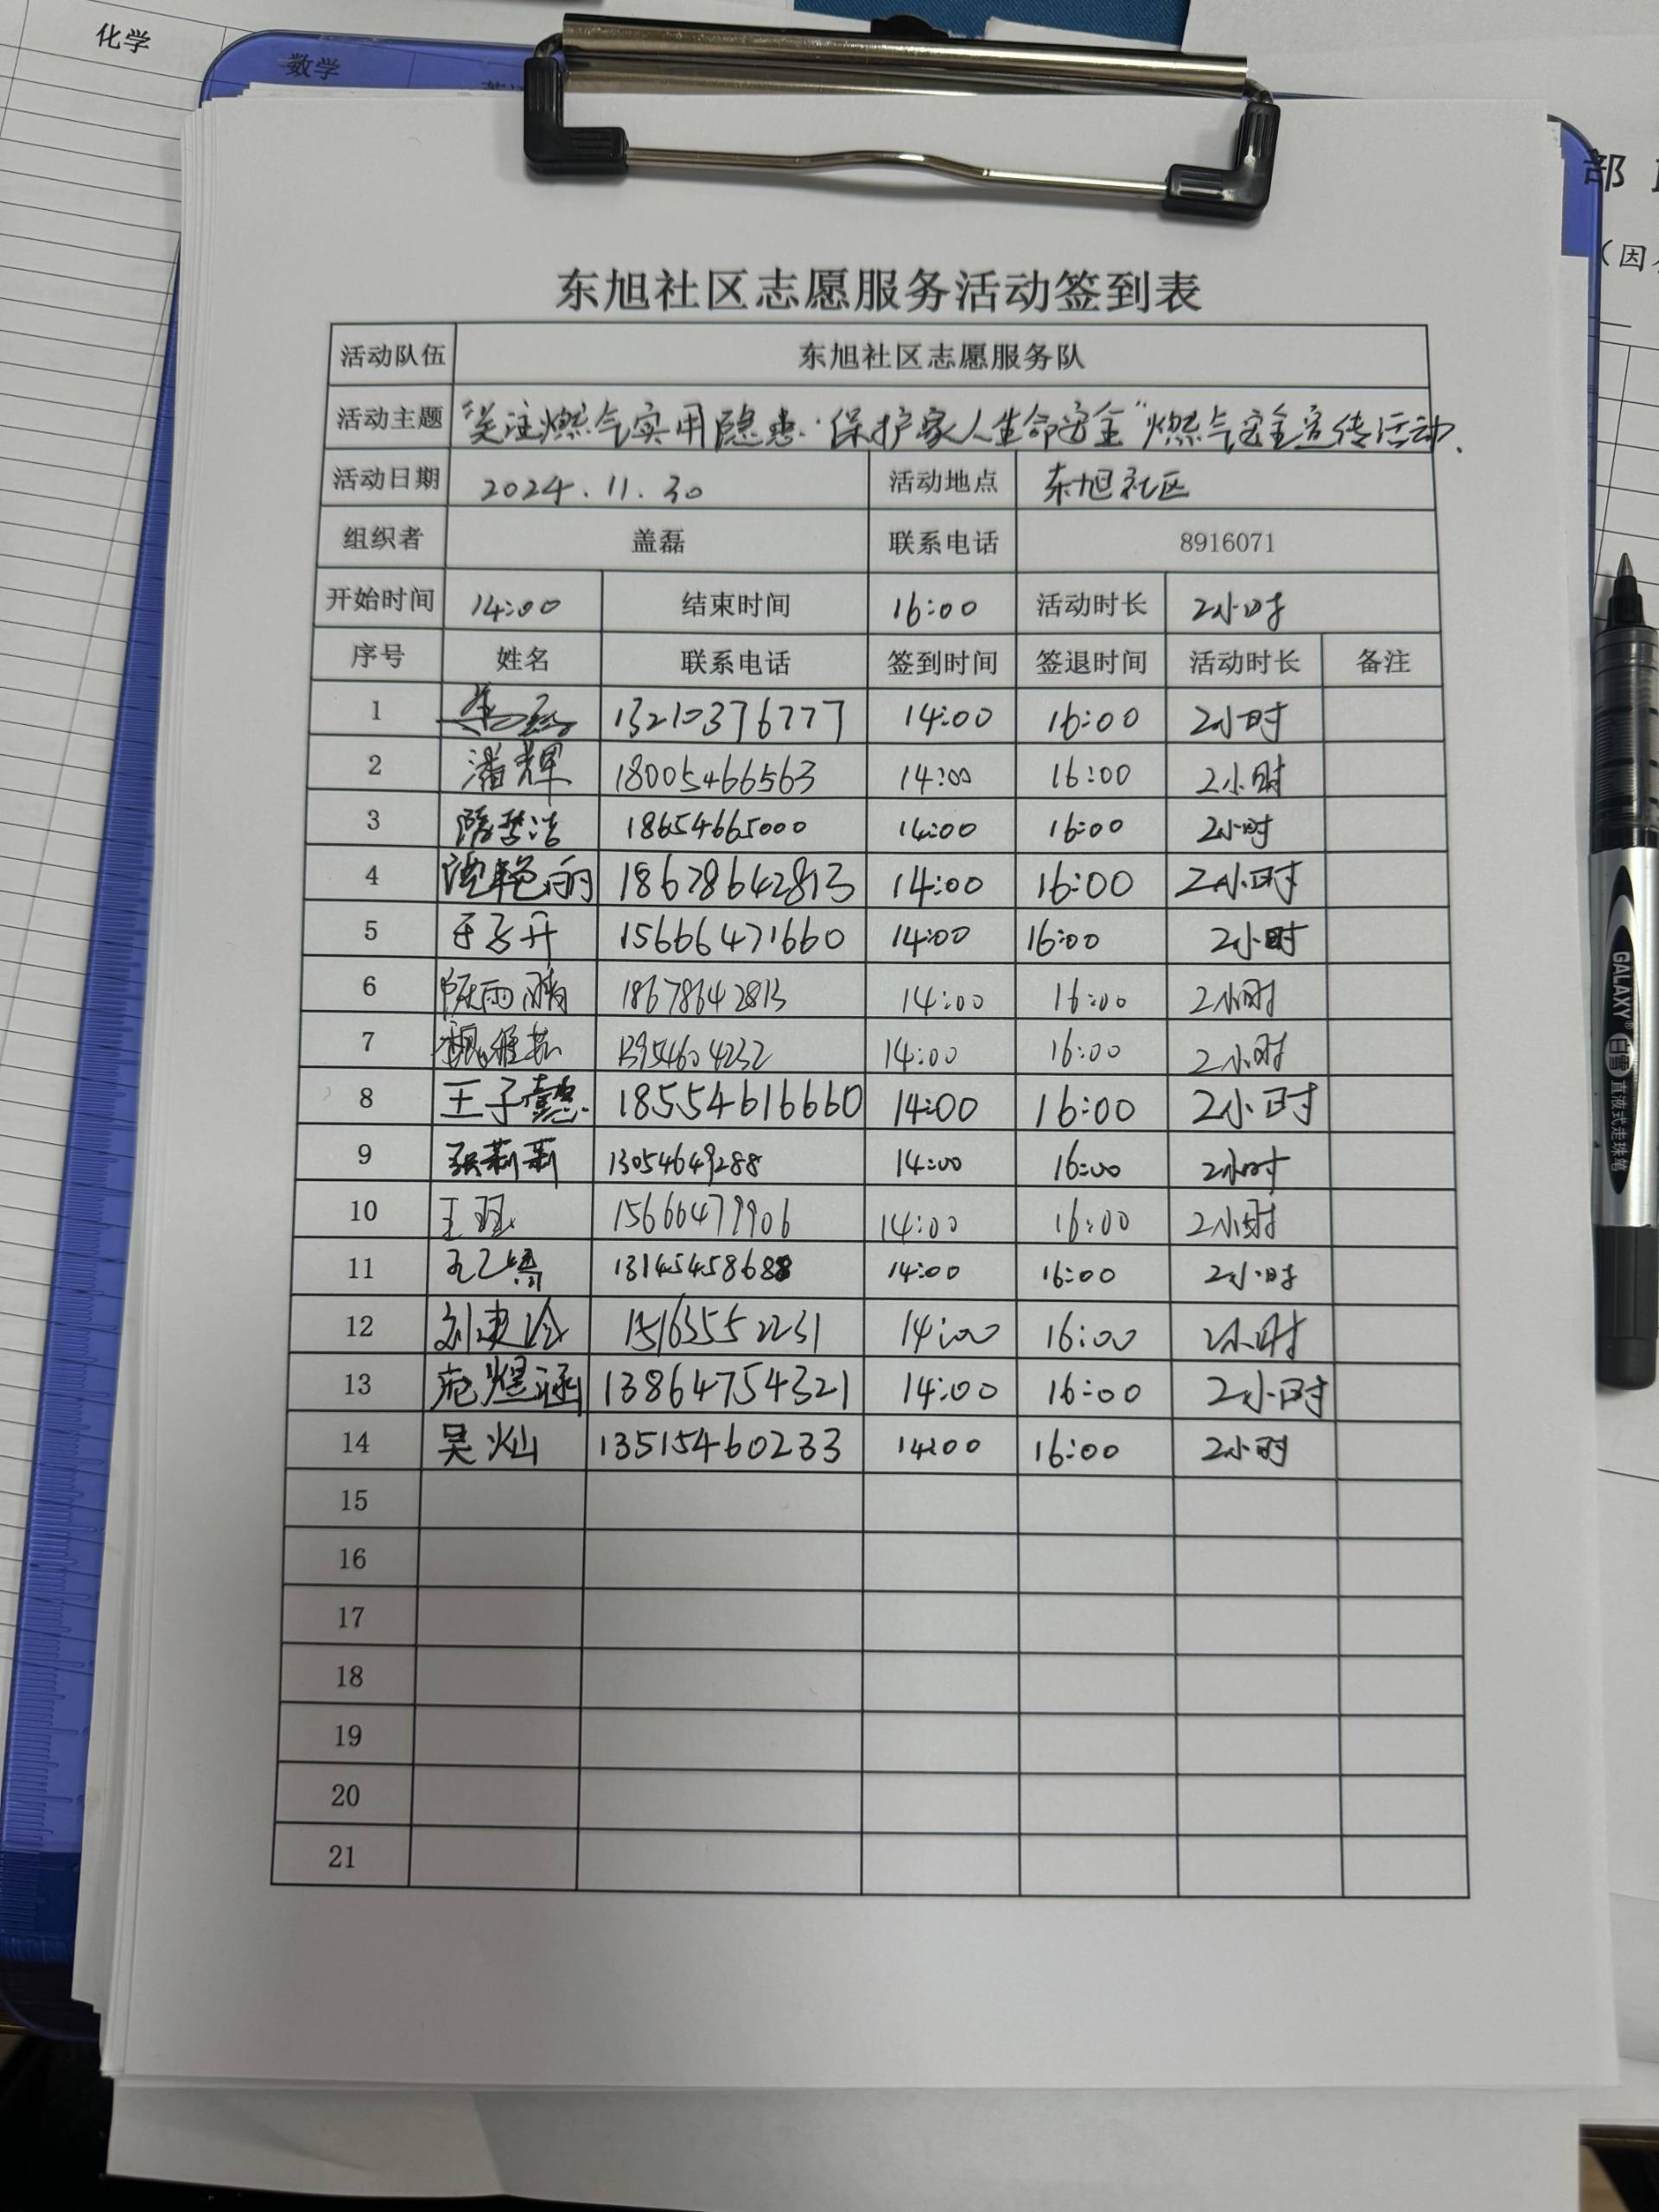 化学
数学
部
（因
东旭社区志愿服务活动签到表
活动队伍 东旭社区志愿服务队
活动主题 "关注燃气实用隐患·保护家人生命安全"燃气安全宣传活动.
活动日期 2024.11.30 活动地点 东旭社区
组织者 盖磊 联系电话 8916071
开始时间 14:00 结束时间 16:00 活动时长 2小时
序号 姓名 联系电话 签到时间 签退时间 活动时长 备注
1 13210376777 14:00 16:00 2小时
2 潘辉 18005466563 14:00 16:00 2小时
3 18654665000 14:00 16:00 2小时
4 18678642813 14:00 16:00 2小时
5 15666471660 14:00 16:00 2小时
6 18678642813 14:00 16:00 2小时
7 13954604232 14:00 16:00 2小时
8 王子懿 18554616660 14:00 16:00 2小时
9 张莉莉 13054649288 14:00 16:00 2小时
10 14:00 16:00 2小时
11 14:00 16:00 2小时
12 15163552231 14:00 16:00 2小时
13 范煜涵 13864754321 14:00 16:00 2小时
14 吴灿 13515460233 14:00 16:00 2小时
15
16
17
18
19
20
21
GALAXY® 白雪 直液式走珠笔